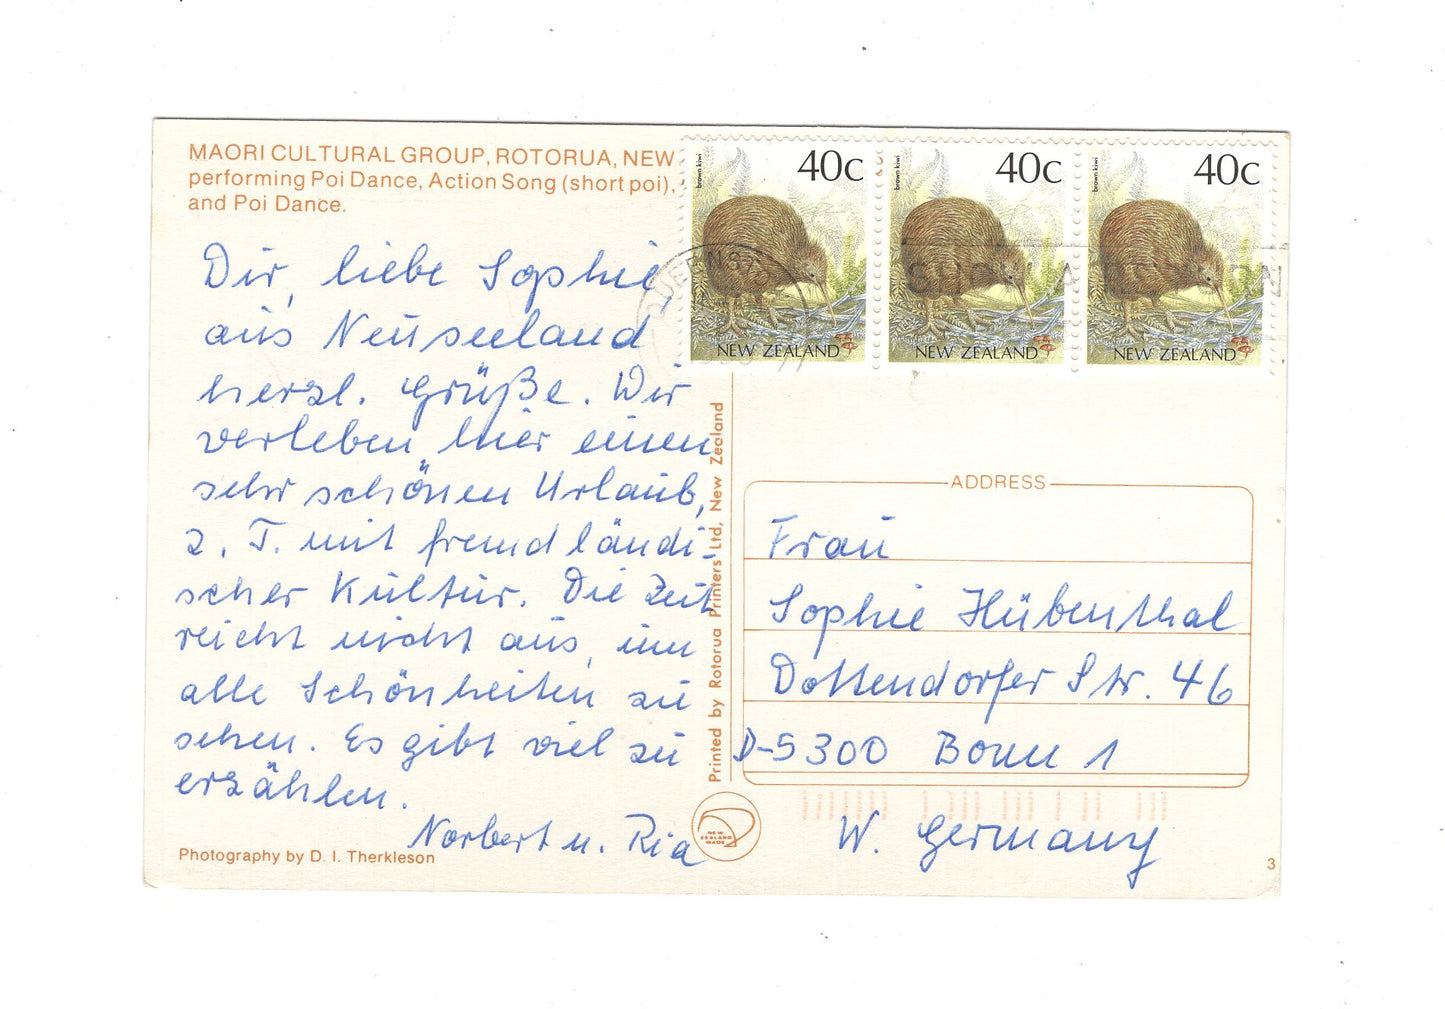 MAORI CULTURAL GROUP, ROTORUA, NEW
performing Poi Dance, Action Song (short poi),
and Poi Dance.
Dir, liebe Sophie,
aus Neuseeland
herzl. Grüße. Wir
verleben hier einen
sehr schönen Urlaub,
z. T. mit fremdländi-
scher Kultur. Die Zeit
reicht nicht aus, um
alle Schönheiten zu
sehen. Es gibt viel zu
erzählen.
Norbert u. Ria
Photography by D. I. Therkleson
Printed by Rotorua Printers Ltd, New Zealand
NEW
ZEALAND
MADE
brown kiwi
40c
NEW ZEALAND
brown kiwi
40c
NEW ZEALAND
brown kiwi
40c
NEW ZEALAND
ADDRESS
Frau
Sophie Hübenthal
Dottendorfer Str. 46
D-5300 Bonn 1
W. Germany
3